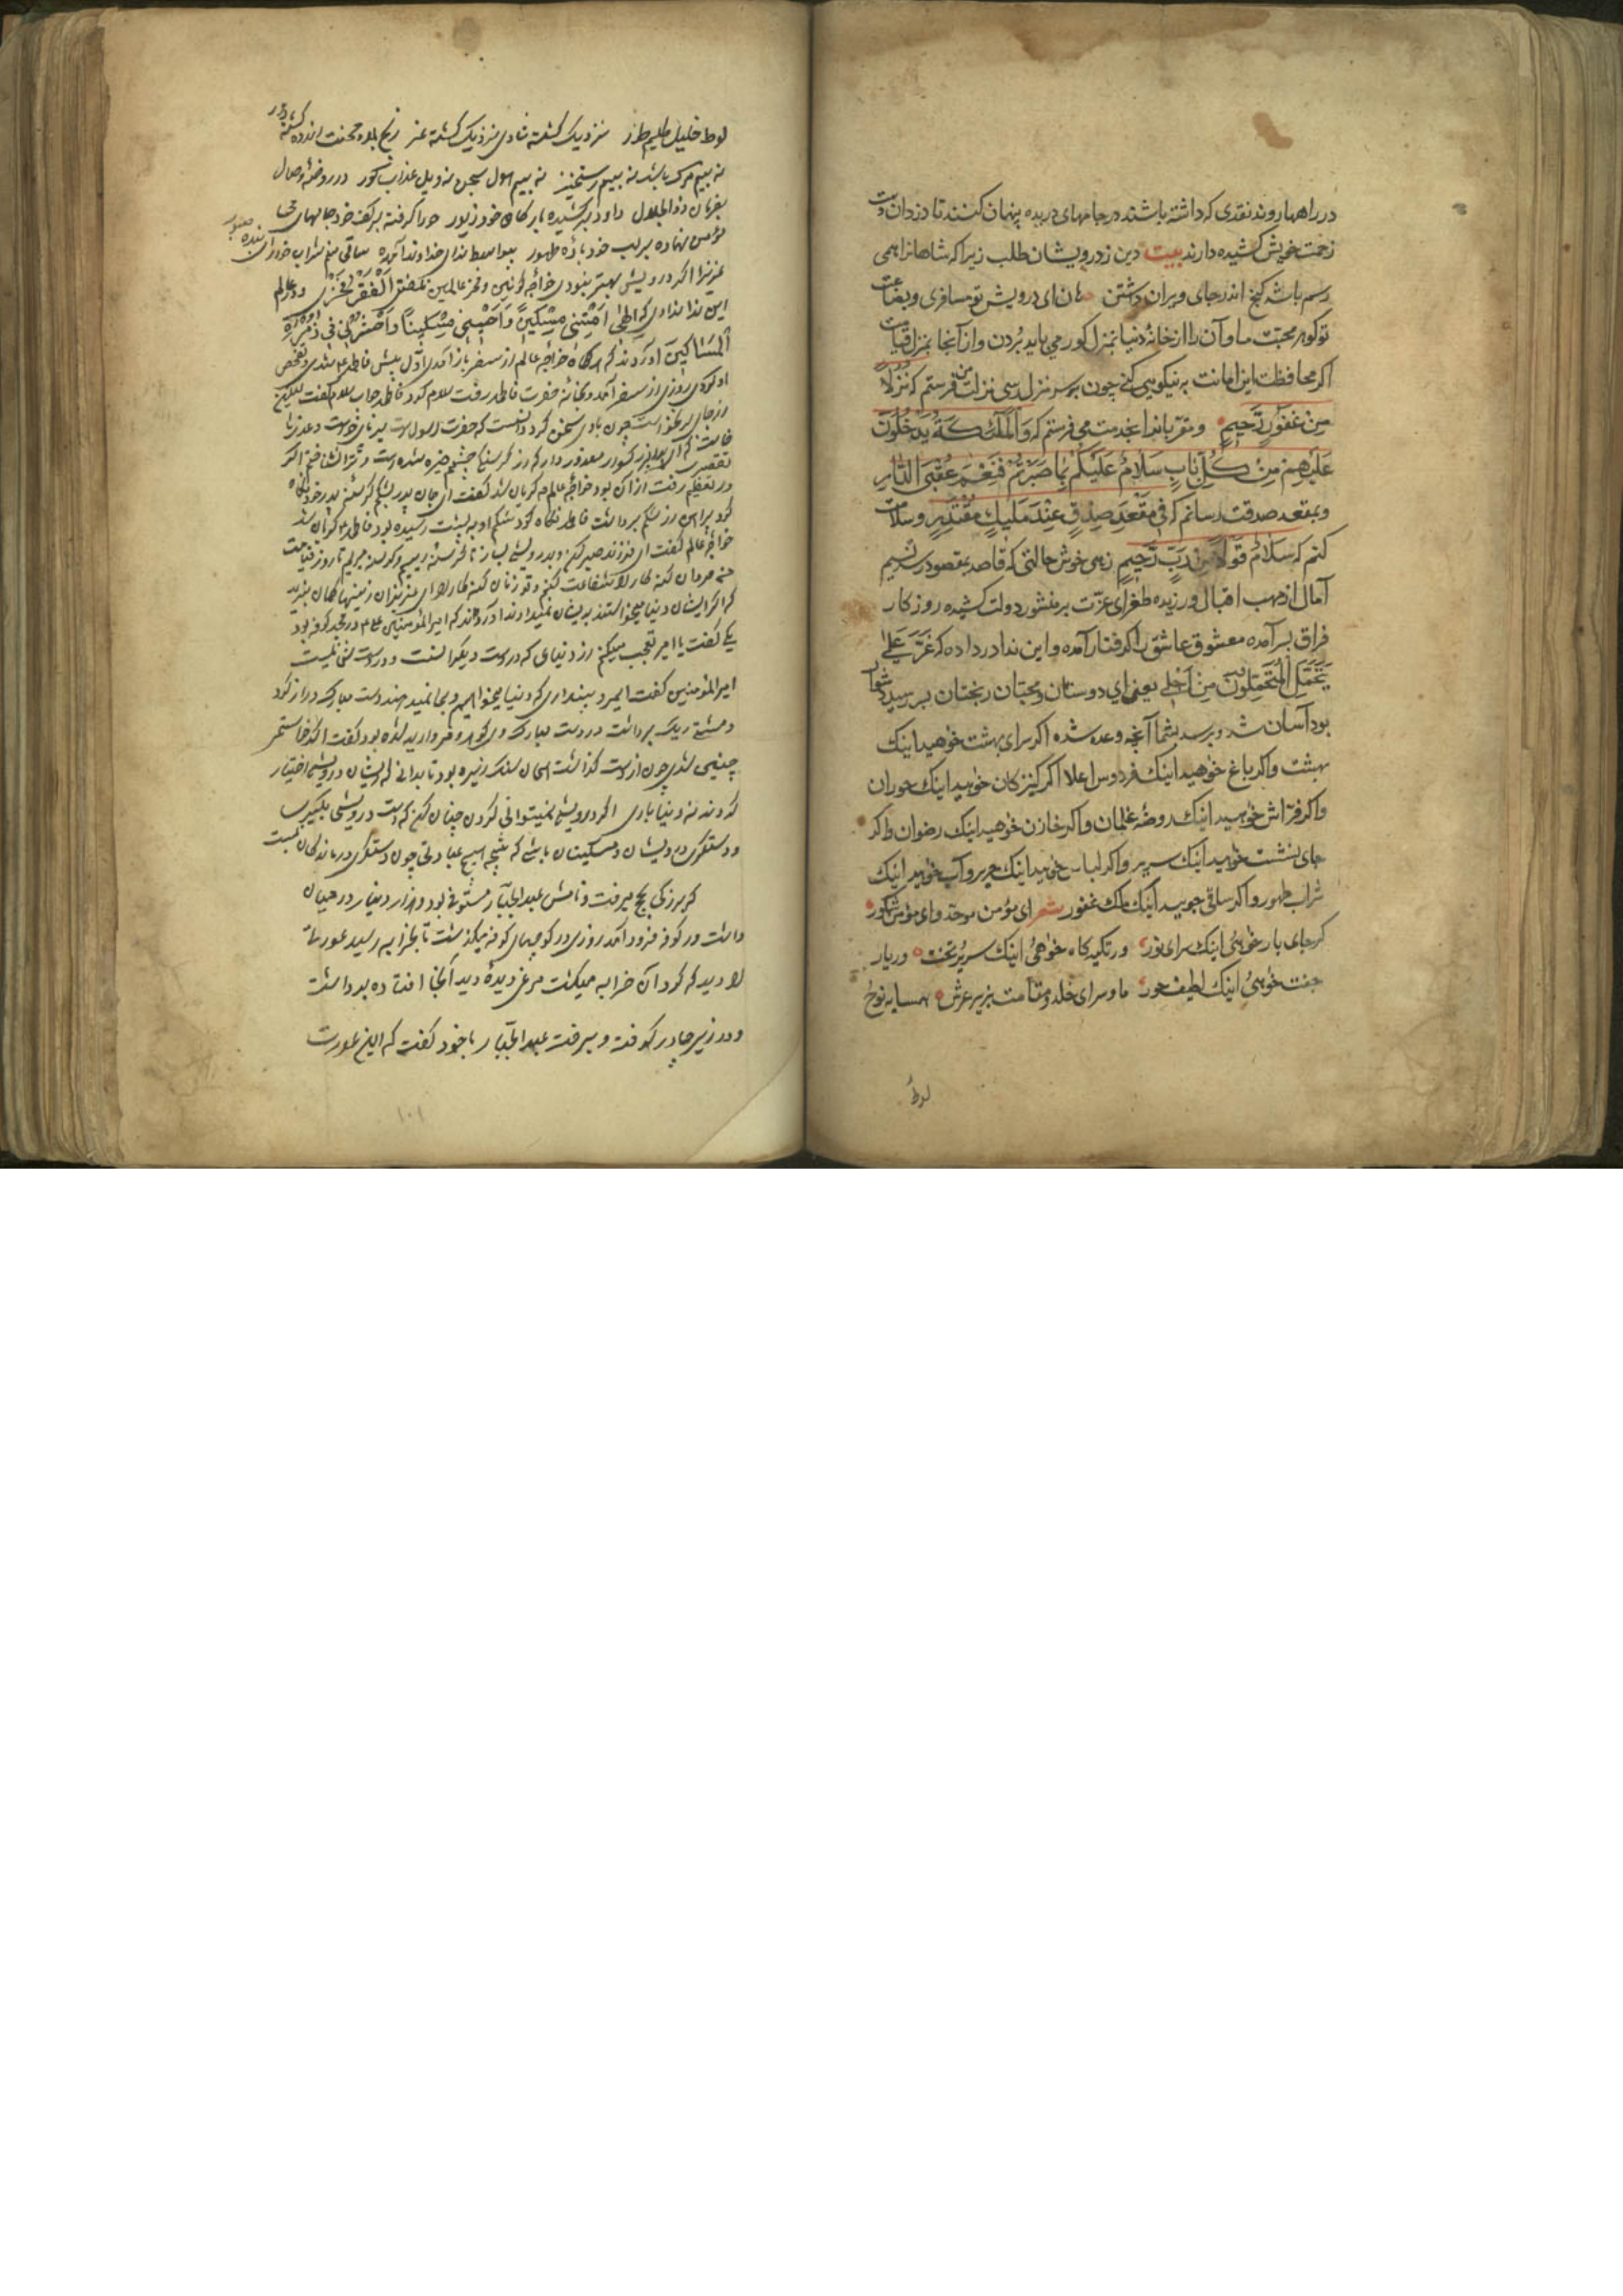 در راهها روند نقدی که داشته باشند در جامهای دریده پنهان کنند تا دزدان دست
زحمت خویش کشیده دارند بیت دین ز درویشان طلب زیرا که شاهانرا همی
رسم باشد گنج اندر جای ویران داشتن هان ای درویش تو مسافری و بضاعت
تو گوهر محبت ما و آن را از خانهٔ دنیا بمنزل گور می باید بُردن و از آنجا بمنزل قیامت
اگر محافظت این امانت به نیکویی کنی چون بر سر منزل رسی نزلت من فرستم که نُزُلًا
مِنْ غَفُورٍ رَّحِیمٍ و مقربانرا بخدمت می فرستم که وَالْمَلٰئِکَةُ یَدْخُلُونَ
عَلَیْهِمْ مِنْ کُلِّ بَابٍ سَلَامٌ عَلَیْکُمْ بِمَا صَبَرْتُمْ فَنِعْمَ عُقْبَی الدَّارِ
و بمقعد صدقت رسانم که فِی مَقْعَدِ صِدْقٍ عِنْدَ مَلِیکٍ مُقْتَدِرٍ و سلامت
کنم که سَلَامٌ قَوْلًا مِنْ رَبٍّ رَحِیمٍ زهی خوش حالتی که قاصد بمقصود رسد نسیم
آمال از مهب اقبال ورزیده طغرای عزّت بر منشور دولت کشیده روزگار
فراق بسر آمده معشوق عاشق را گرفتار آمده و این ندا در داده که عَزَّ عَلَیَّ
یَتَحَمَّلِ الْمُتَحَمِّلُونَ مِنْ اَجْلِی یعنی ای دوستان و محبّان رنجتان بسر رسید دشوار
بود آسان شد و برسد بشما آنچه وعده شده اگر سرای بهشت خوٰهید اینک
بهشت و اگر باغ خوٰهید اینک فردوس اعلا اگر کنیزکان خوٰهید اینک حوران
و اگر فرّاش خوٰهید اینک روضهٔ غلمان و اگر خازن خوٰهید اینک رضوان و اگر
جای نشست خوٰهید اینک سریر و اگر لباس خوٰهید اینک حریر و آب خوٰهید اینک
شراب طهور و اگر ساقی جویید اینک ملک غفور شعر ای مؤمن موحّد و ای مؤمن شکور
گر جای بار خوٰهیُ اینک سرای نور ور تکیه گاه خوٰهیُ اینک سریر تخت ور یار
جفت خوٰهیُ اینک لطیف حور ماوٰ سرای خلد و مقامت بزیر عرش همسایه نوح
لوط
لوط خلیل کلیم طور نزدیک گشته شادی نزدیک گشته عز رنج بلا و محنت اندوه گشته دور
نه بیم مرگ باشد نه بیم رستخیز نه بیم هول سجن نه ویل عذاب گور در روضهٔ وصال
بفرمان ذو الجلال داود برکشیده بارکان خود زبور حورا گرفته بر کف خود جامهای می
مؤمن نهاده بر لب خود بادهٔ طهور بیواسطه ندای خداوند آمده ساقی منم شراب خور ای بنده صبور
عزیزا اگر درویشی بهتر نبودی خواجهٔ کونین و فخر عالمین نگفتی اَلْفَقْرُ فَخْرِی و در عالم
این ندا ندادی که اِلٰهِی اَمِتْنِی مِسْکِینًا وَاَحْیِنِی مِسْکِینًا وَاحْشُرْنِی فِی زُمْرَةِ
الْمَسَاکِینَ آورده اند که هرگاه خواجهٔ عالم از سفر باز آمدی اوّل پیش فاطمه شدی و تفحص
او کردی روزی از سفر آمد و بخانهٔ حضرت فاطمه رفت سلام کرد فاطمه جواب سلام گفت لیکن
از جای برنخواست چون بادی سخن کرد دانست که حضرت رسول است برپای خواست و عذرها
خواست که ای پدر بزرگوار معذور دار که از گرسنگی چشمم خیره شده است و ترا نشناختم اگر
تقصیر در تعظیم رفت از آن بود خواجهٔ عالم گریان شد گفت ای جان پدر بشکم گرسنهٔ پدر خود نگاه
کرد پیراهن از شکم برداشت فاطمه نگاه کرد شکم او به پشت رسیده بود فاطمه گریان شد
خواجهٔ عالم گفت ای فرزند صبر کن و بدرویشی بساز تا گرسنه زییم و گرسنه میریم تا روز قیامت
من مردان گنه کار را شفاعت کنم و تو زنان گنه کار را ای عزیزان زینهار گمان مبرید
که اگر ایشان دنیا میخواستند بدیشان نمیدادند آورده اند که امیر المؤمنین علی در مسجد کوفه بود
یکی گفت یا امیر تعجب میکنم از دنیای که در دست دیگرانست و در دست شما نیست
امیر المؤمنین گفت ای مرد پنداری که دنیا میخواهیم و بما نمیدهند دست مبارک دراز کرد
و مشتی ریگ برداشت در دست مبارک وی گوهر و مروارید شده بود گفت اگر خواستمی
چنین شدی چون از دست گذاشت همان سنگ ریزه بود تا بدانی که ایشان درویشی اختیار
کردند نه دنیا باری اگر درویشی نمیتوانی کردن چنان کن که دست درویشی بگیری
و دستگیری درویشان و مسکینان باشی که هیچ عبادتی چون دستگیری درماندگان نیست
که بزرگی بحج میرفت و نامش عبد الجبّار مستوفی بود و هزار دینار در میان
داشت در کوفه فرود آمد روزی در کوچهای کوفه میگذشت تا بخرابه رسید عورتی
را دید که گرد آن خرابه میگشت مرغی دیده دید آنجا افتاده برداشت
و در زیر چادر گرفت و برفت عبد الجبّار با خود گفت که این عورت
۱۰۱